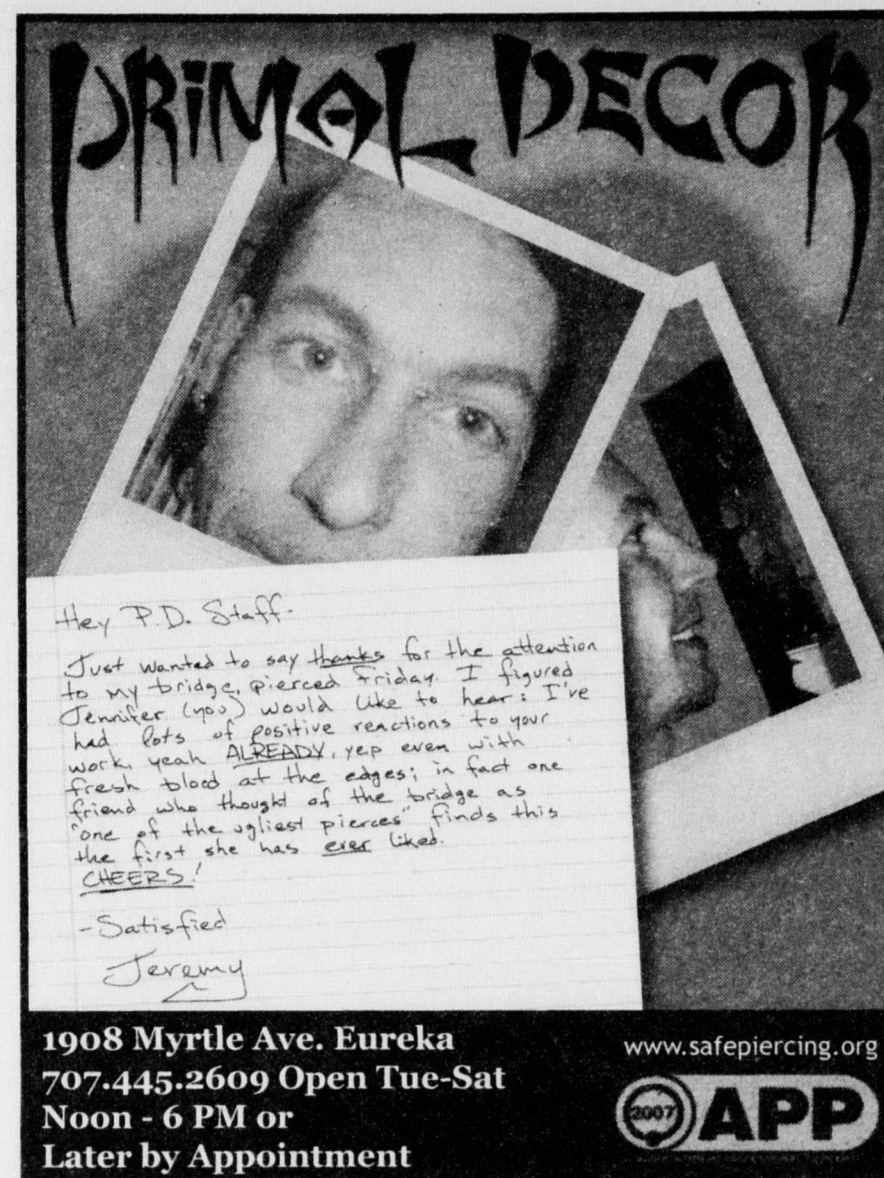 PRIMAL DECOR
Hey P.D. Staff-
Just wanted to say thanks for the attention
to my bridge, pierced Friday. I figured
Jennifer (you) would like to hear: I've
had lots of positive reactions to your
work, yeah ALREADY, yep even with
fresh blood at the edges; in fact one
friend who thought of the bridge as
"one of the ugliest pierces" finds this
the first she has ever liked.
CHEERS!
-Satisfied
Jeremy
1908 Myrtle Ave. Eureka
707.445.2609 Open Tue-Sat
Noon - 6 PM or
Later by Appointment
www.safepiercing.org
2007 APP